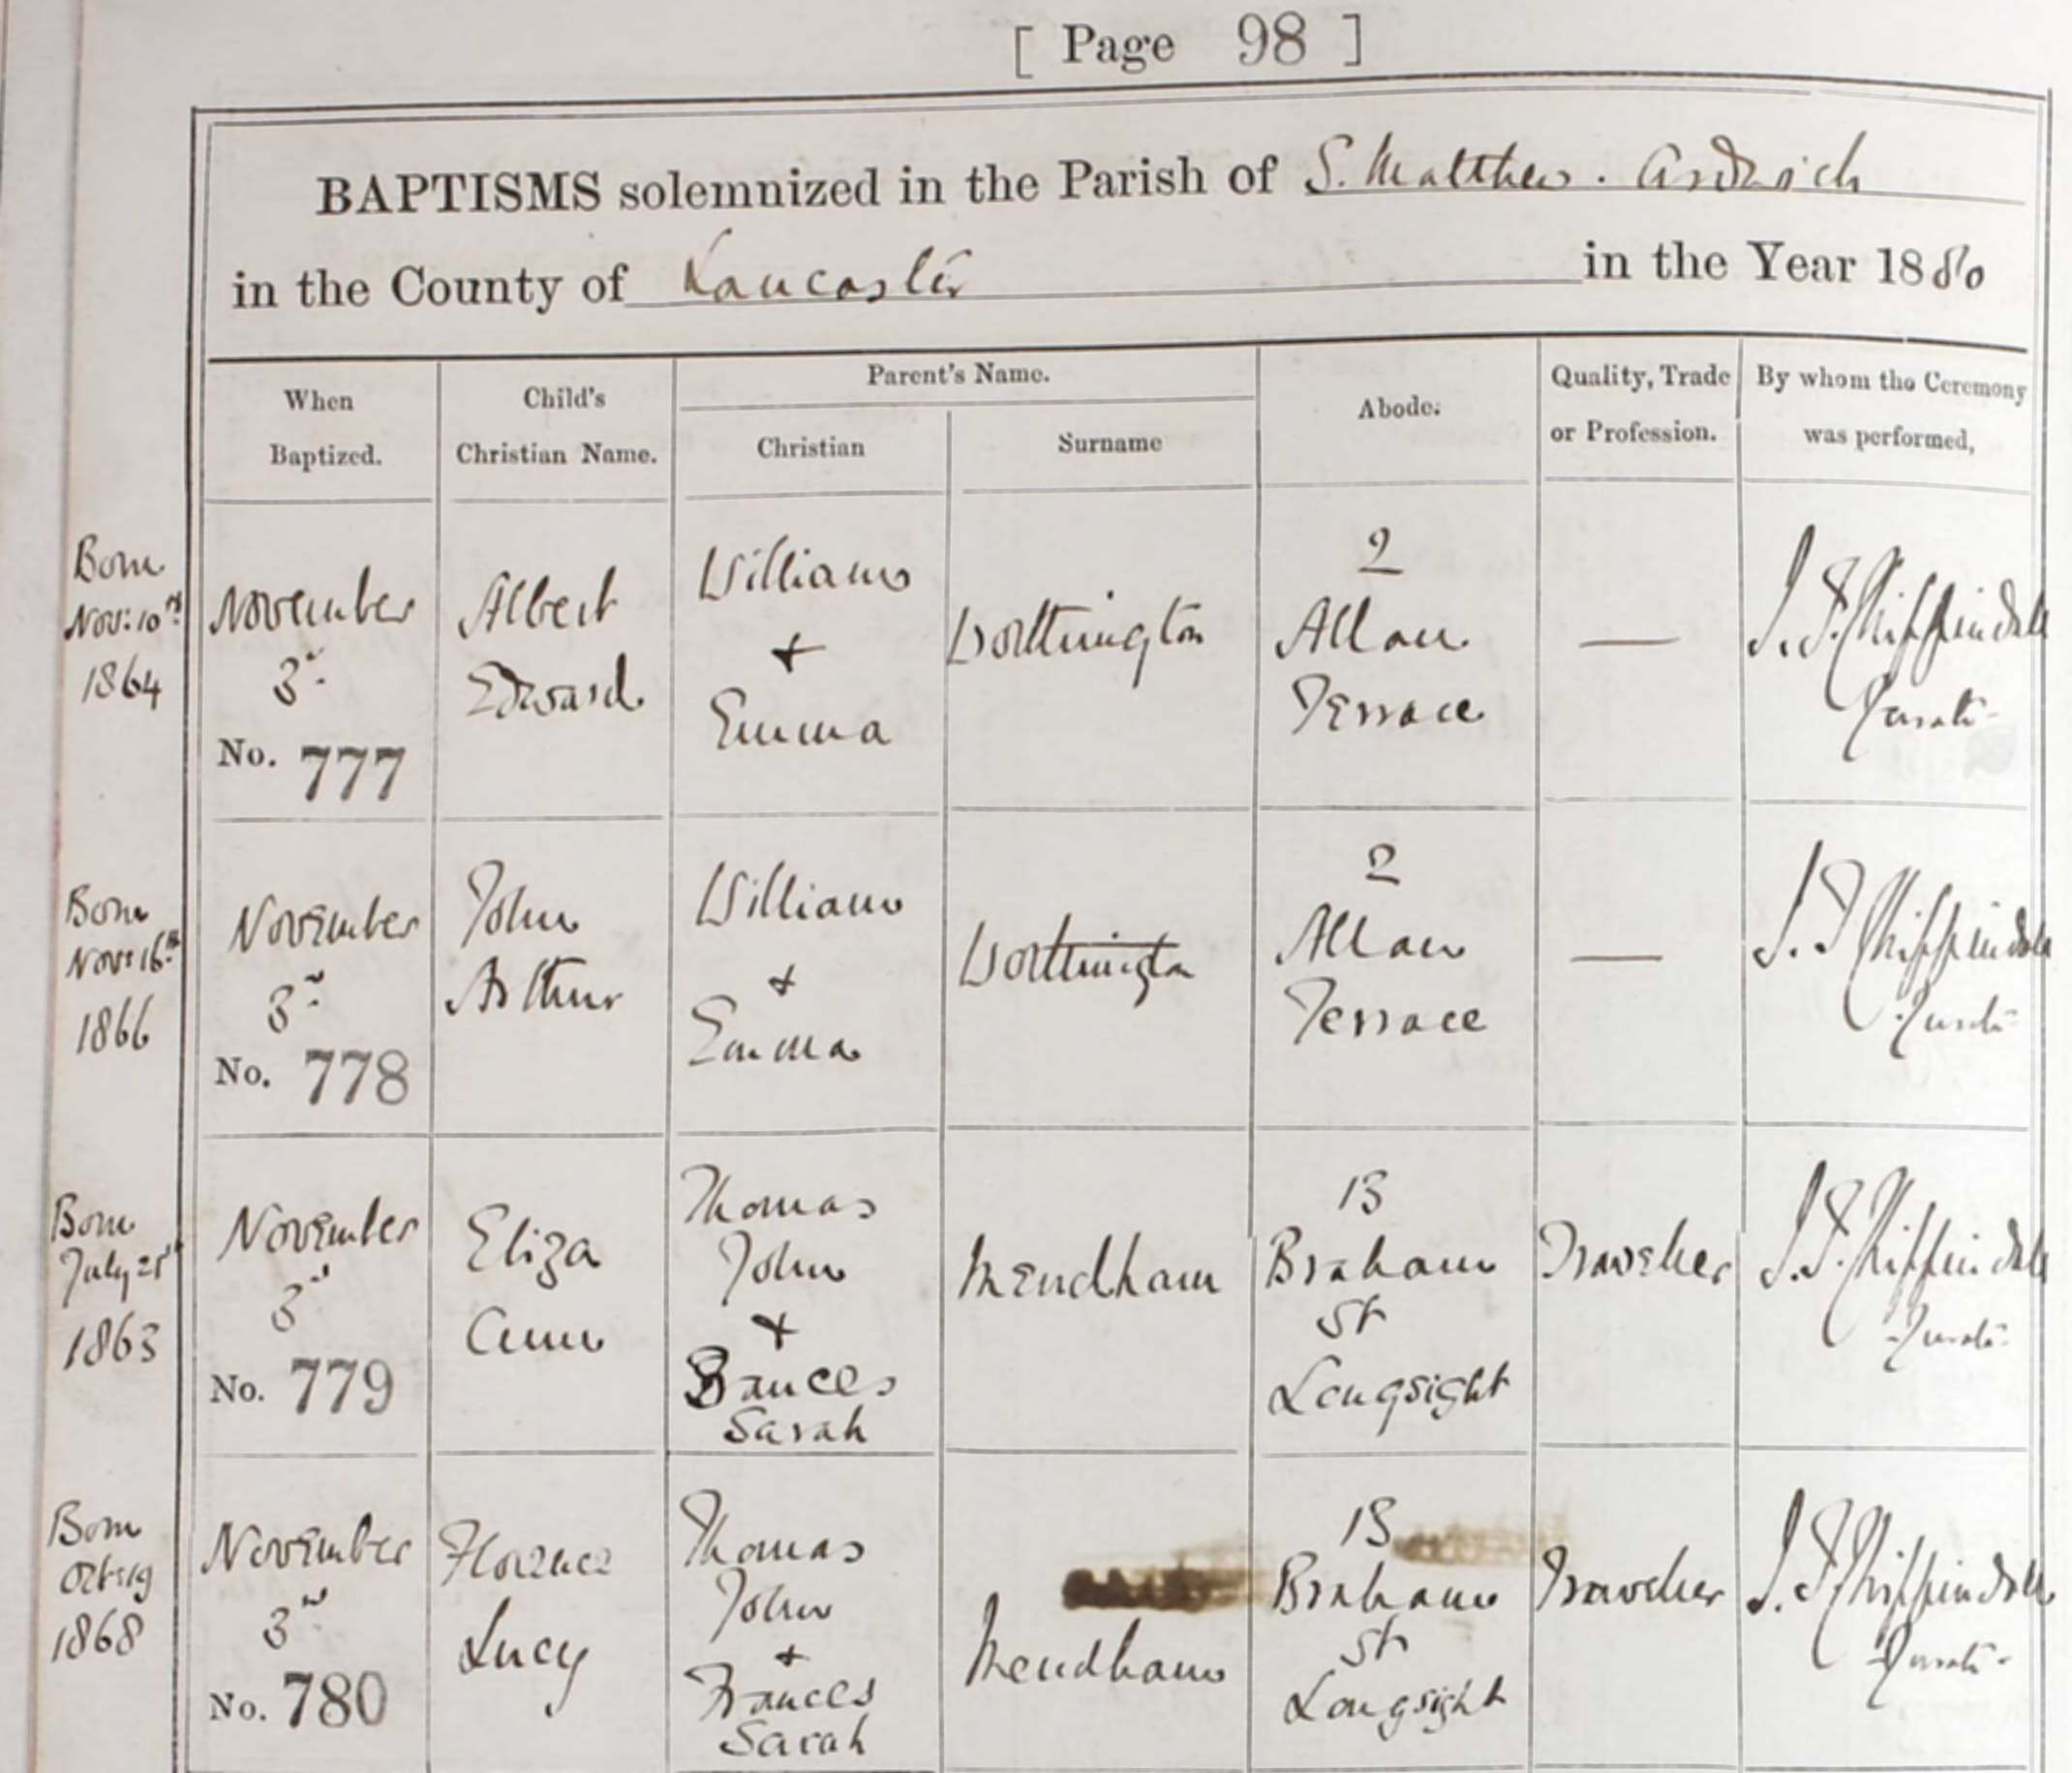 [ Page 98 ]
BAPTISMS solemnized in the Parish of S. Matthew. Ardwick
in the County of Lancaster in the Year 1880
When
Baptized.
Child's
Christian Name.
Parent's Name.
Christian
Surname
Abode.
Quality, Trade
or Profession.
By whom the Ceremony
was performed,
Born
Nov: 10th
1864
November
3rd
No. 777
Albert
Edward
William
+
Emma
Worthington
2
Allan
Terrace
—
Curate
Born
Nov: 16th
1866
November
3rd
No. 778
John
Arthur
William
+
Emma
Worthington
2
Allan
Terrace
—
Curate
Born
July
1863
November
3rd
No. 779
Eliza
Ann
Thomas
John
+
Frances
Sarah
Mendham
13
Braham
St
Longsight
Traveller
Curate
Born
Oct: 19
1868
November
3rd
No. 780
Florence
Lucy
Thomas
John
+
Frances
Sarah
Mendham
13
Braham
St
Longsight
Traveller
Curate